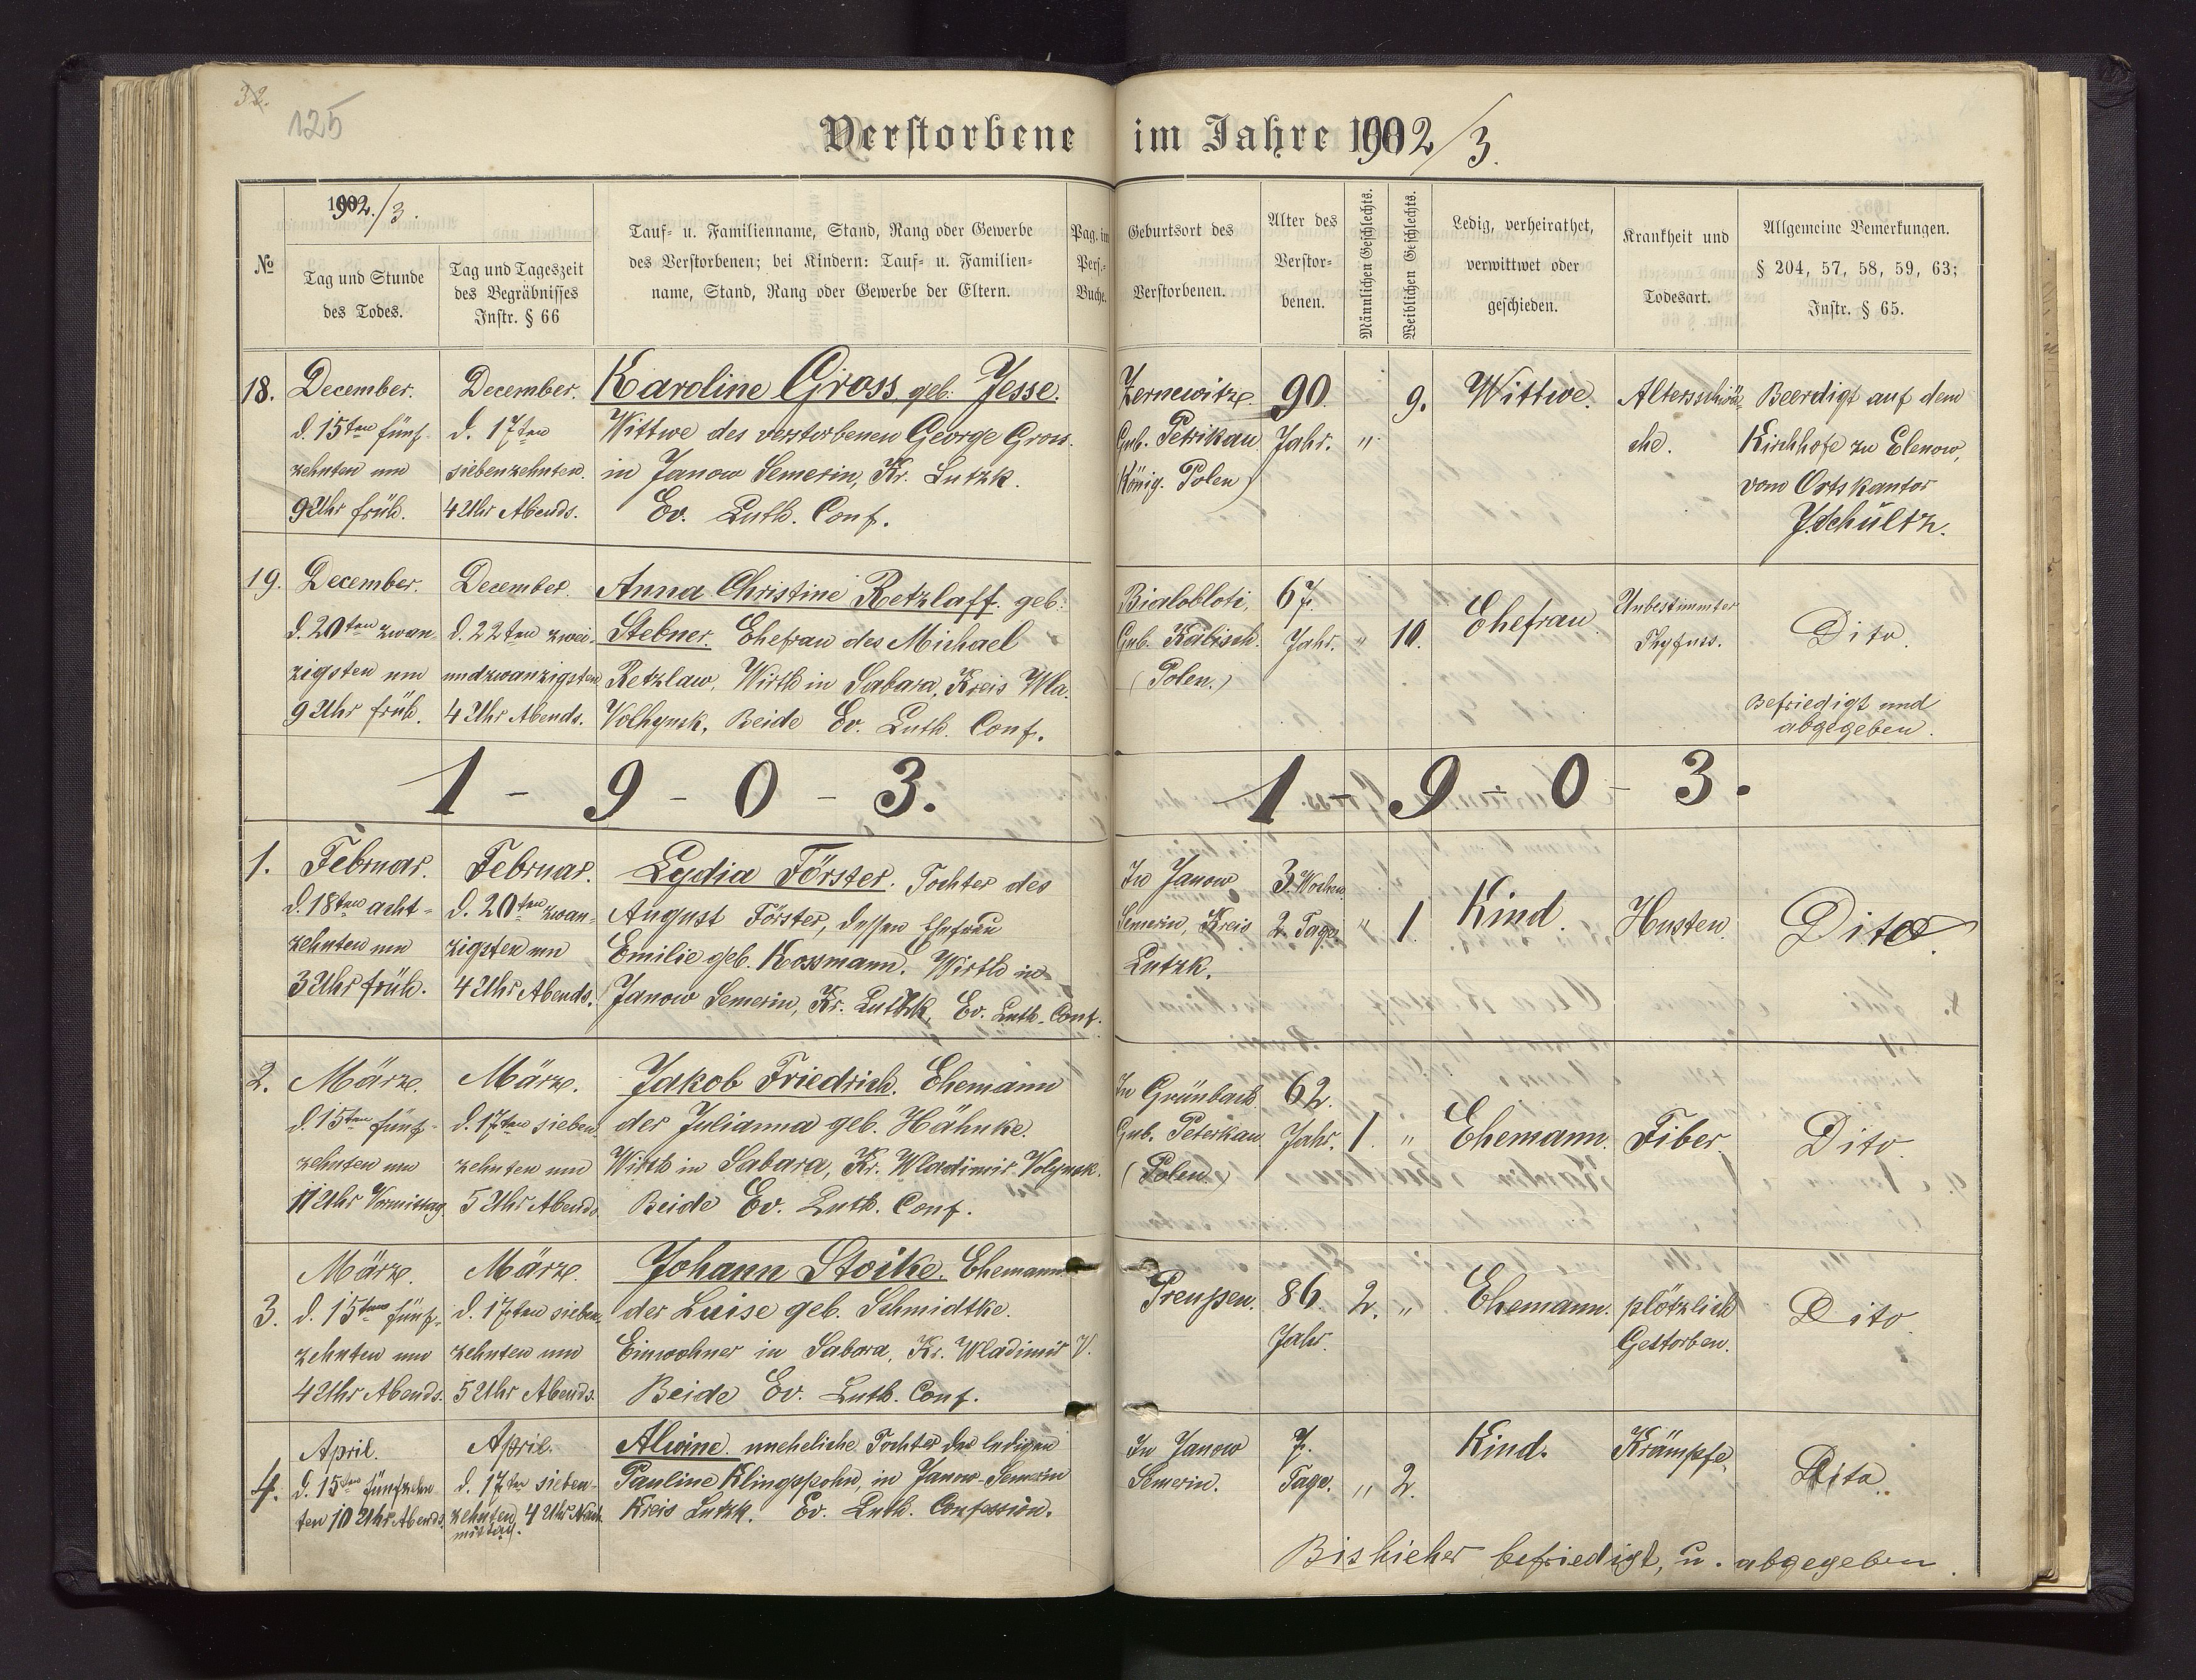 32.
125
Verstorbene im Jahre 1902/3.
№
1902/3.
Tag und Stunde
des Todes.
Tag und Tageszeit
des Begräbnisses
Instr. § 66
Tauf- u. Familienname, Stand, Rang oder Gewerbe
des Verstorbenen; bei Kindern: Tauf- u. Familien-
name, Stand, Rang oder Gewerbe der Eltern.
Pag. im
Pers.-
Buche.
Geburtsort des
Verstorbenen.
Alter des
Verstor-
benen.
Männlichen Geschlechts.
Weiblichen Geschlechts.
Ledig, verheirathet,
verwittwet oder
geschieden.
Krankheit und
Todesart.
Allgemeine Bemerkungen.
§ 204, 57, 58, 59, 63;
Instr. § 65.
18.
December.
d. 15ten fünf-
zehnten um
9 Uhr früh.
December.
d. 17ten
siebenzehnten.
4 Uhr Abends.
Karoline Gross, geb. Jesse.
Wittwe des verstorbenen George Gross.
in Janow Semerin, Kr. Lutzk.
Ev. Luth. Conf.
Zernewitze.
Gub. Petrikau
(König. Polen)
90
Jahr.
"
9.
Wittwe.
Altersschwä-
che.
Beerdigt auf dem
Kirchhofe zu Elenow,
vom Ortskantor
J. Schultz.
19.
December.
d. 20ten zwan-
zigsten um
9 Uhr früh.
December.
d. 22ten zwei-
undzwanzigsten
4 Uhr Abends.
Anna Christine Retzlaff. geb.
Stebner. Ehefrau des Michael
Retzlaw, Wirth in Sabara, Kreis Wla.
Volhynsk. Beide Ev. Luth. Conf.
Bialobloti,
Gub. Kalisch.
(Polen.)
67.
Jahr.
"
10.
Ehefrau.
Unbestimmter
Thyfuss.
Dito.
Befriedigt und
abgegeben.
1 - 9 - 0 - 3.
1 - 9 - 0 - 3.
1.
Februar.
d. 18ten acht-
zehnten um
3 Uhr früh.
Februar.
d. 20ten zwan-
zigsten um
4 Uhr Abends.
Lydia Förster. Tochter des
August Förster, dessen Ehefrau
Emilie geb. Kossmann. Wirth in
Janow Semerin, Kr. Lutzk, Ev. Luth. Conf.
In Janow
Semerin, Kreis
Lutzk.
3 Wochen
2 Tage
"
1.
Kind.
Husten.
Dito.
2.
Märze.
d. 15ten fünf-
zehnten um
11 Uhr Vormittag
Märze.
d. 17ten sieben-
zehnten um
5 Uhr Abends.
Jakob Friedrich. Ehemann
der Julianna geb. Hähnke.
Wirth in Sabara, Kr. Wladimir Volynsk.
Beide Ev. Luth. Conf.
In Grünbach
Gub. Peterkau
(Polen.)
62.
Jahr.
1.
"
Ehemann.
Fiber.
Dito.
3.
Märze.
d. 15ten fünf-
zehnten um
4 Uhr Abends.
Märze.
d. 17ten sieben-
zehnten um
5 Uhr Abends.
Johann Stoike. Ehemann
der Luise geb. Schmidtke.
Einwohner in Sabara, Kr. Wladimir V.
Beide Ev. Luth. Conf.
Preußen.
86.
Jahr.
2.
"
Ehemann.
plötzlich
Gestorben.
Dito.
4.
April.
d. 15ten fünfzehn-
ten 10 Uhr Abends.
April.
d. 17ten sieben-
zehnten 4 Uhr Nach-
mittag.
Alwine. uneheliche Tochter der ledigen
Pauline Klingspohn, in Janow-Semerin
Kreis Lutzk. Ev. Luth. Confession.
In Janow
Semerin.
7.
Tage.
"
2.
Kind.
Krämpfe.
Dito.
Bishieher befriedigt, u. abgegeben.